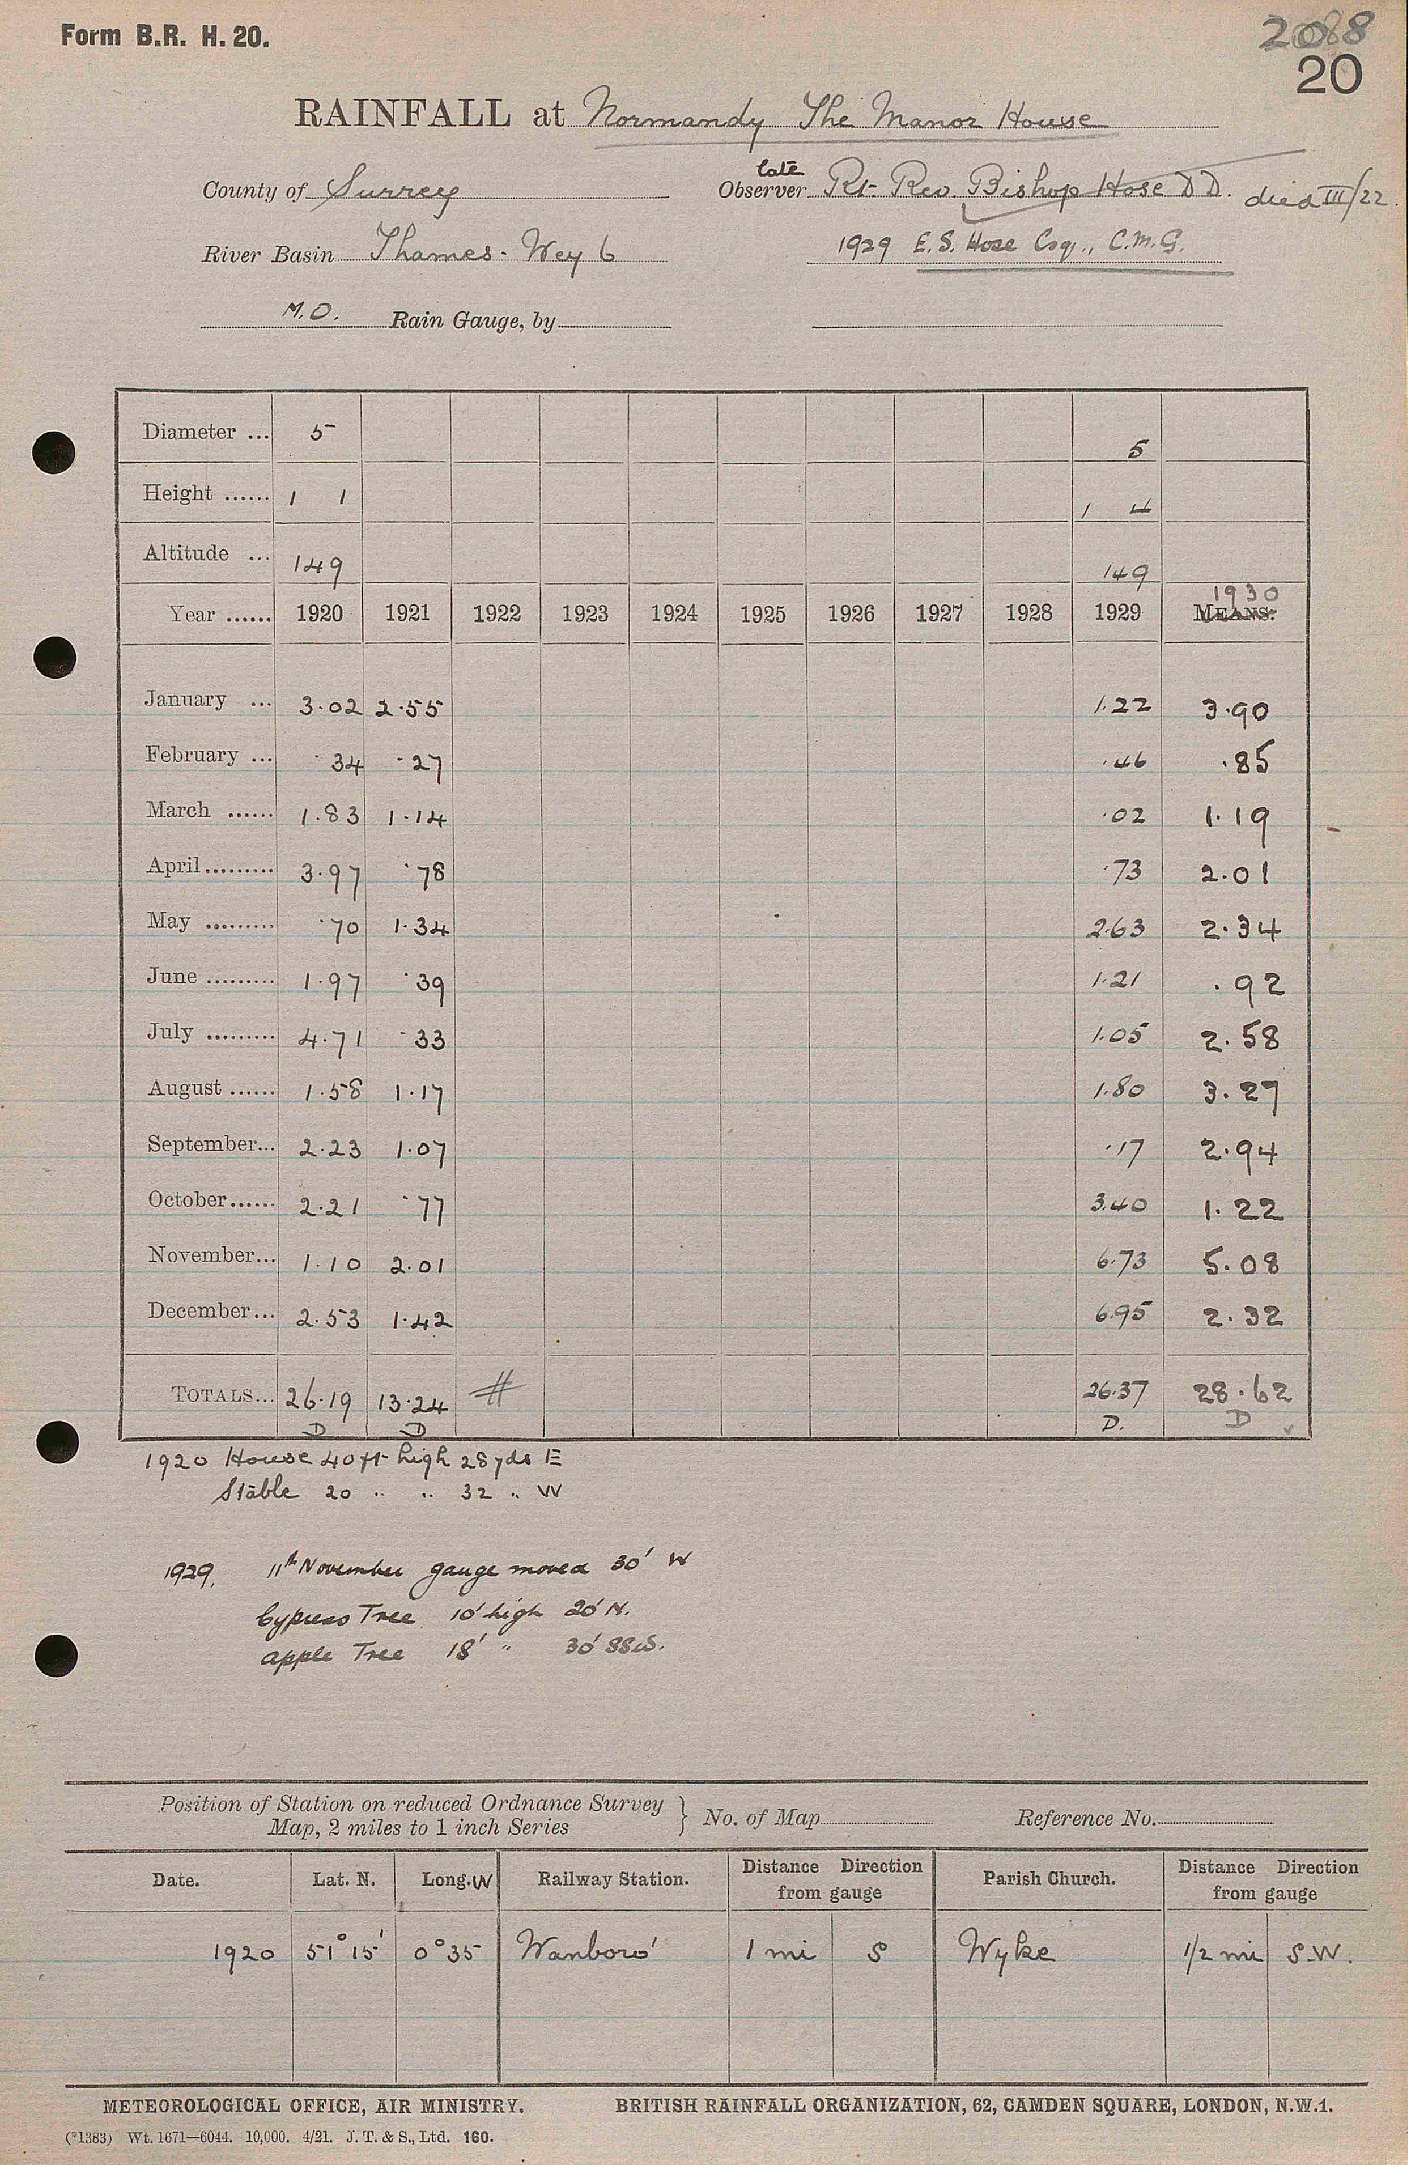 Form B.R. H. 20.
2088
20
RAINFALL at Normandy The Manor House
County of Surrey
late
Observer Rt. Rev. Bishop Hose D D. died III/22
River Basin Thames - Wey 6
1929 E.S. Hose Esq., C.M.G.
M.O. Rain Gauge, by
Diameter ... 5 5
Height ...... 1 1 1 4
Altitude ... 149 149
1930
Year ...... 1920 1921 1922 1923 1924 1925 1926 1927 1928 1929 MEANS.
January ... 3.02 2.55 1.22 3.90
February ... .34 .27 .46 .85
March ...... 1.83 1.14 .02 1.19
April ......... 3.97 .78 .73 2.01
May ......... .70 1.34 2.63 2.34
June ......... 1.97 .39 1.21 .92
July ......... 4.71 .33 1.05 2.58
August ...... 1.58 1.17 1.80 3.27
September... 2.23 1.07 .17 2.94
October...... 2.21 .77 3.40 1.22
November... 1.10 2.01 6.73 5.08
December... 2.53 1.42 6.95 2.32
TOTALS... 26.19 13.24 # 26.37 28.62
D D D. D
1920 House 40 ft high 28 yds E
Stable 20 " " 32 " W
1929. 11th November gauge moved 30' W
Cypress Tree 10' high 20' N.
apple Tree 18' " 30' SSW.
Position of Station on reduced Ordnance Survey
Map, 2 miles to 1 inch Series } No. of Map Reference No.
Date. Lat. N. Long. W Railway Station. Distance Direction from gauge Parish Church. Distance Direction from gauge
1920 51° 15' 0° 35 Wanboro' 1 mi S Wyke 1/2 mi S.W.
METEOROLOGICAL OFFICE, AIR MINISTRY. BRITISH RAINFALL ORGANIZATION, 62, CAMDEN SQUARE, LONDON, N.W.1.
(*1383) Wt. 1671—6044. 10,000. 4/21. J. T. & S., Ltd. 160.